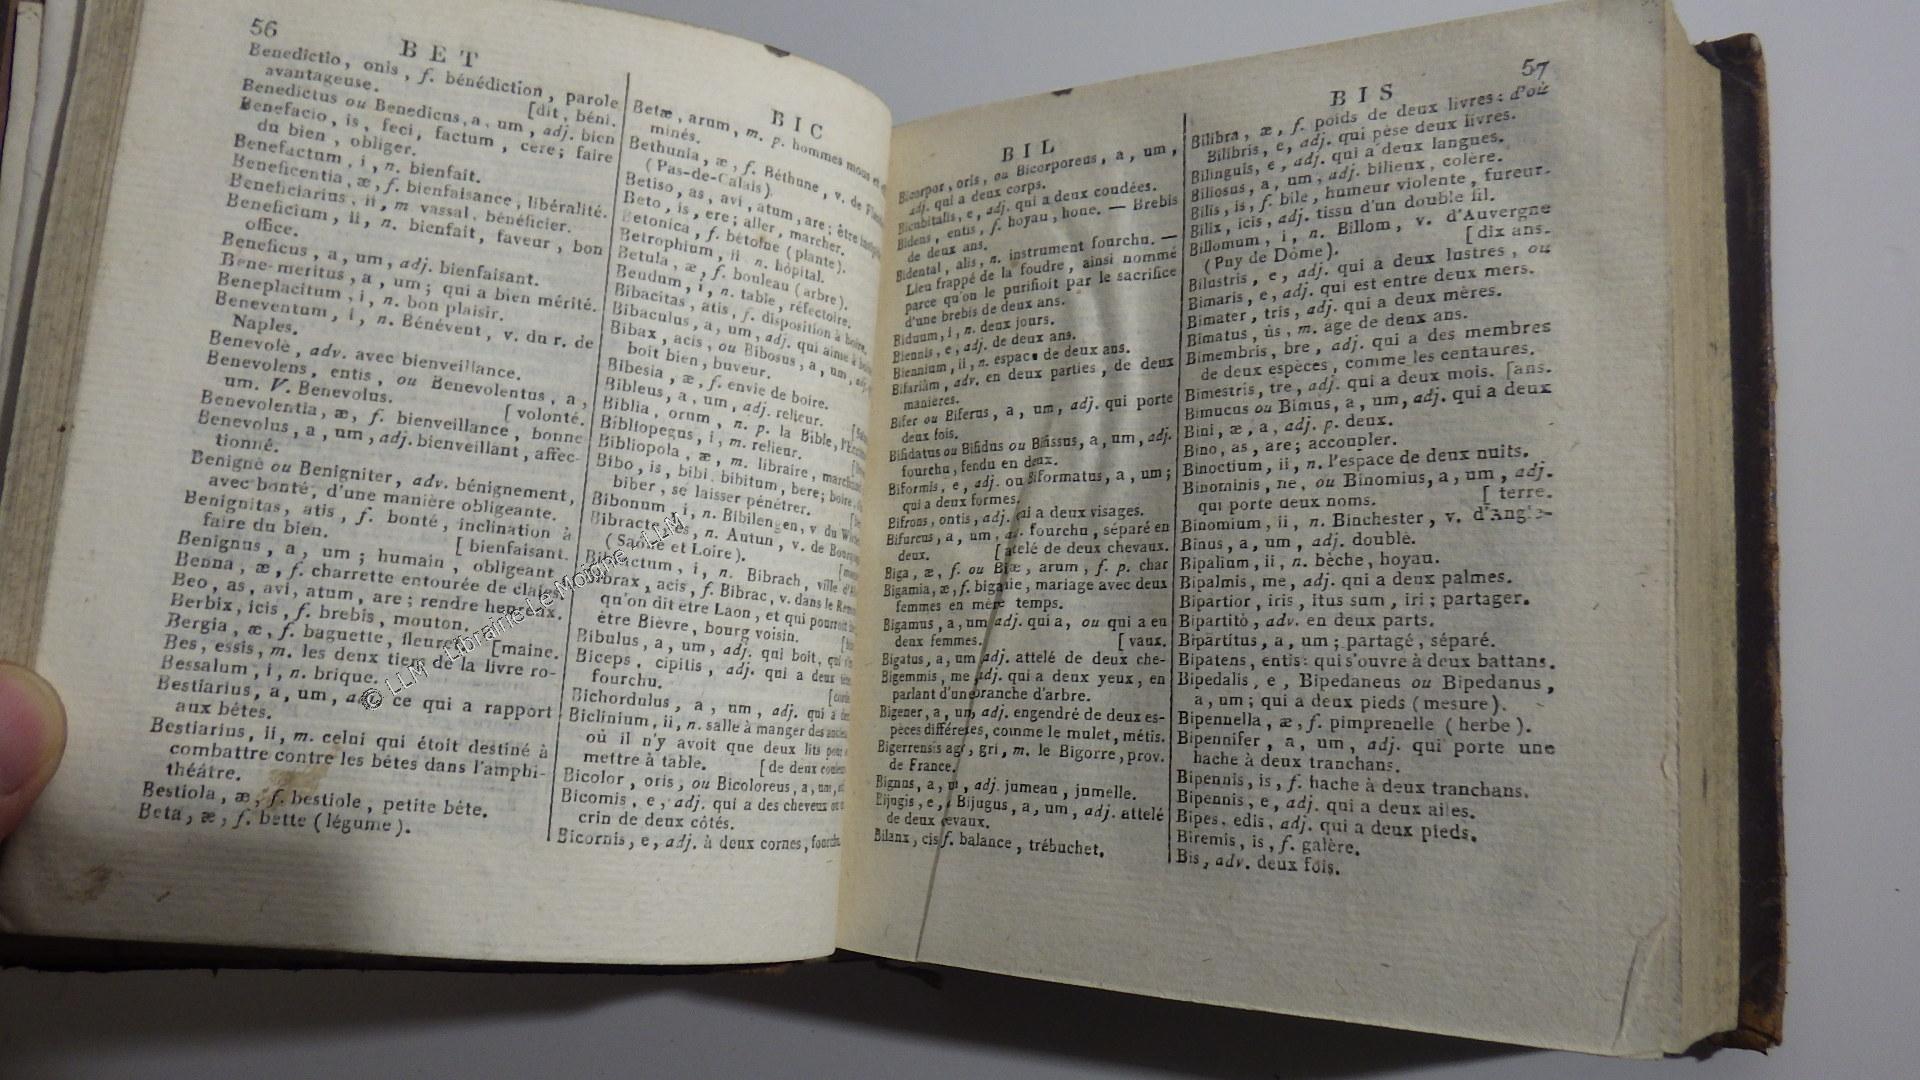 56
BET
Benedictio, onis, f. bénédiction, parole
avantageuse. [dit, béni.
Benedictus ou Benedicus, a, um, adj. bien
Benefacio, is, feci, factum, cere; faire
du bien, obliger.
Benefactum, i, n. bienfait.
Beneficentia, æ, f. bienfaisance, libéralité.
Beneficiarius, ii, m vassal, bénéficier.
Beneficium, ii, n. bienfait, faveur, bon
office.
Beneficus, a, um, adj. bienfaisant.
Bene-meritus, a, um; qui a bien mérité.
Beneplacitum, i, n. bon plaisir.
Beneventum, i, n. Bénévent, v. du r. de
Naples.
Benevolè, adv. avec bienveillance.
Benevolens, entis, ou Benevolentus, a,
um. V. Benevolus. [volonté.
Benevolentia, æ, f. bienveillance, bonne
Benevolus, a, um, adj. bienveillant, affec-
tionné.
Benignè ou Benigniter, adv. bénignement,
avec bonté, d'une manière obligeante.
Benignitas, atis, f. bonté, inclination à
faire du bien. [bienfaisant.
Benignus, a, um; humain, obligeant
Benna, æ, f. charrette entourée de claies.
Beo, as, avi, atum, are; rendre heureux.
Berbix, icis, f. brebis, mouton.
Bergia, æ, f. baguette, fleuret. [maine.
Bes, essis, m. les deux tiers de la livre ro-
Bessalum, i, n. brique.
Bestiarius, a, um, adj. ce qui a rapport
aux bêtes.
Bestiarius, ii, m. celui qui étoit destiné à
combattre contre les bêtes dans l'amphi-
théâtre.
Bestiola, æ, f. bestiole, petite bête.
Beta, æ, f. bette (légume).
BIC
Betæ, arum, m. p. hommes mous et
minés.
Bethunia, æ, f. Béthune, v. de
(Pas-de-Calais).
Betiso, as, avi, atum, are; être
Beto, is, ere; aller, marcher.
Betonica, f. bétoine (plante).
Betrophium, ii n. hôpital.
Betula, æ, f. bouleau (arbre).
Beudum, i, n. table, réfectoire.
Bibacitas, atis, f. disposition à boire.
Bibaculus, a, um, adj. qui aime à
Bibax, acis, ou Bibosus, a, um, adj.
boit bien, buveur.
Bibesia, æ, f. envie de boire.
Bibleus, a, um, adj. relieur.
Biblia, orum, n. p. la Bible,
Bibliopegus, i, m. relieur.
Bibliopola, æ, m. libraire,
Bibo, is, bibi bibitum, bere; boire,
biber, se laisser pénétrer.
Bibonum, i, n. Bibilengen, v. du
Bibracte, es, n. Autun, v. de
(Saône et Loire).
Bibractum, i, n. Bibrach, ville
Bibrax, acis, f. Bibrac, v. dans le
qu'on dit être Laon, et qui pourroit
être Bièvre, bourg voisin.
Bibulus, a, um, adj. qui boit, qui
Biceps, cipitis, adj. qui a deux
fourchu.
Bichordulus, a, um, adj. qui a
Biclinium, ii, n. salle à manger des
où il n'y avoit que deux lits pour
mettre à table. [de deux
Bicolor, oris, ou Bicoloreus, a, um,
Bicomis, e, adj. qui a des cheveux ou
crin de deux côtés.
Bicornis, e, adj. à deux cornes,
© LLM - Librairie Le Moigne - LLM
BIL
Bicorpor, oris, ou Bicorporeus, a, um,
adj. qui a deux corps.
Bicubitalis, e, adj. qui a deux coudées.
Bidens, entis, f. hoyau, houe. — Brebis
de deux ans.
Bidental, alis, n. instrument fourchu. —
Lieu frappé de la foudre, ainsi nommé
parce qu'on le purifioit par le sacrifice
d'une brebis de deux ans.
Biduum, i, n. deux jours.
Biennis, e, adj. de deux ans.
Biennium, ii, n. espace de deux ans.
Bifariàm, adv. en deux parties, de deux
manières.
Bifer ou Biferus, a, um, adj. qui porte
deux fois.
Bifidatus ou Bifidus ou Bifissus, a, um, adj.
fourchu, fendu en deux.
Biformis, e, adj. ou Biformatus, a, um;
qui a deux formes.
Bifrons, ontis, adj. qui a deux visages.
Bifurcus, a, um, adj. fourchu, séparé en
deux. [atelé de deux chevaux.
Biga, æ, f. ou Bigæ, arum, f. p. char
Bigamia, æ, f. bigamie, mariage avec deux
femmes en même temps.
Bigamus, a, um adj. qui a, ou qui a eu
deux femmes. [vaux.
Bigatus, a, um adj. attelé de deux che-
Bigemmis, me, adj. qui a deux yeux, en
parlant d'une branche d'arbre.
Bigener, a, um, adj. engendré de deux es-
pèces différentes, comme le mulet, métis.
Bigerrensis ager, gri, m. le Bigorre, prov.
de France.
Bignus, a, um, adj. jumeau, jumelle.
Bijugis, e, Bijugus, a, um, adj. attelé
de deux chevaux.
Bilanx, cis f. balance, trébuchet.
57
BIS
Bilibra, æ, f. poids de deux livres: d'où
Bilibris, e, adj. qui pèse deux livres.
Bilinguis, e, adj. qui a deux langues.
Biliosus, a, um, adj. bilieux, colère.
Bilis, is, f. bile, humeur violente, fureur.
Bilix, icis, adj. tissu d'un double fil.
Billomum, i, n. Billom, v. d'Auvergne
(Puy de Dôme). [dix ans.
Bilustris, e, adj. qui a deux lustres, ou
Bimaris, e, adj. qui est entre deux mers.
Bimater, tris, adj. qui a deux mères.
Bimatus, ûs, m. âge de deux ans.
Bimembris, bre, adj. qui a des membres
de deux espèces, comme les centaures.
Bimestris, tre, adj. qui a deux mois. [ans.
Bimucus ou Bimus, a, um, adj. qui a deux
Bini, æ, a, adj. p. deux.
Bino, as, are; accoupler.
Binoctium, ii, n. l'espace de deux nuits.
Binominis, ne, ou Binomius, a, um, adj.
qui porte deux noms. [terre.
Binomium, ii, n. Binchester, v. d'Angle-
Binus, a, um, adj. double.
Bipalium, ii, n. bêche, hoyau.
Bipalmis, me, adj. qui a deux palmes.
Bipartior, iris, itus sum, iri; partager.
Bipartitò, adv. en deux parts.
Bipartitus, a, um; partagé, séparé.
Bipatens, entis: qui s'ouvre à deux battans.
Bipedalis, e, Bipedaneus ou Bipedanus,
a, um; qui a deux pieds (mesure).
Bipennella, æ, f. pimprenelle (herbe).
Bipennifer, a, um, adj. qui porte une
hache à deux tranchans.
Bipennis, is, f. hache à deux tranchans.
Bipennis, e, adj. qui a deux ailes.
Bipes, edis, adj. qui a deux pieds.
Biremis, is, f. galère.
Bis, adv. deux fois.